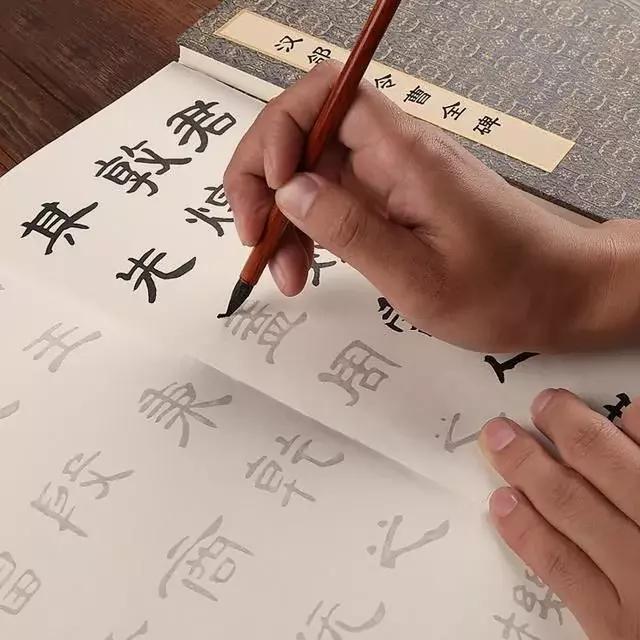 汉郃
令曹全碑
君
敦煌
其先蓋周之
王秉乾之機
殷商